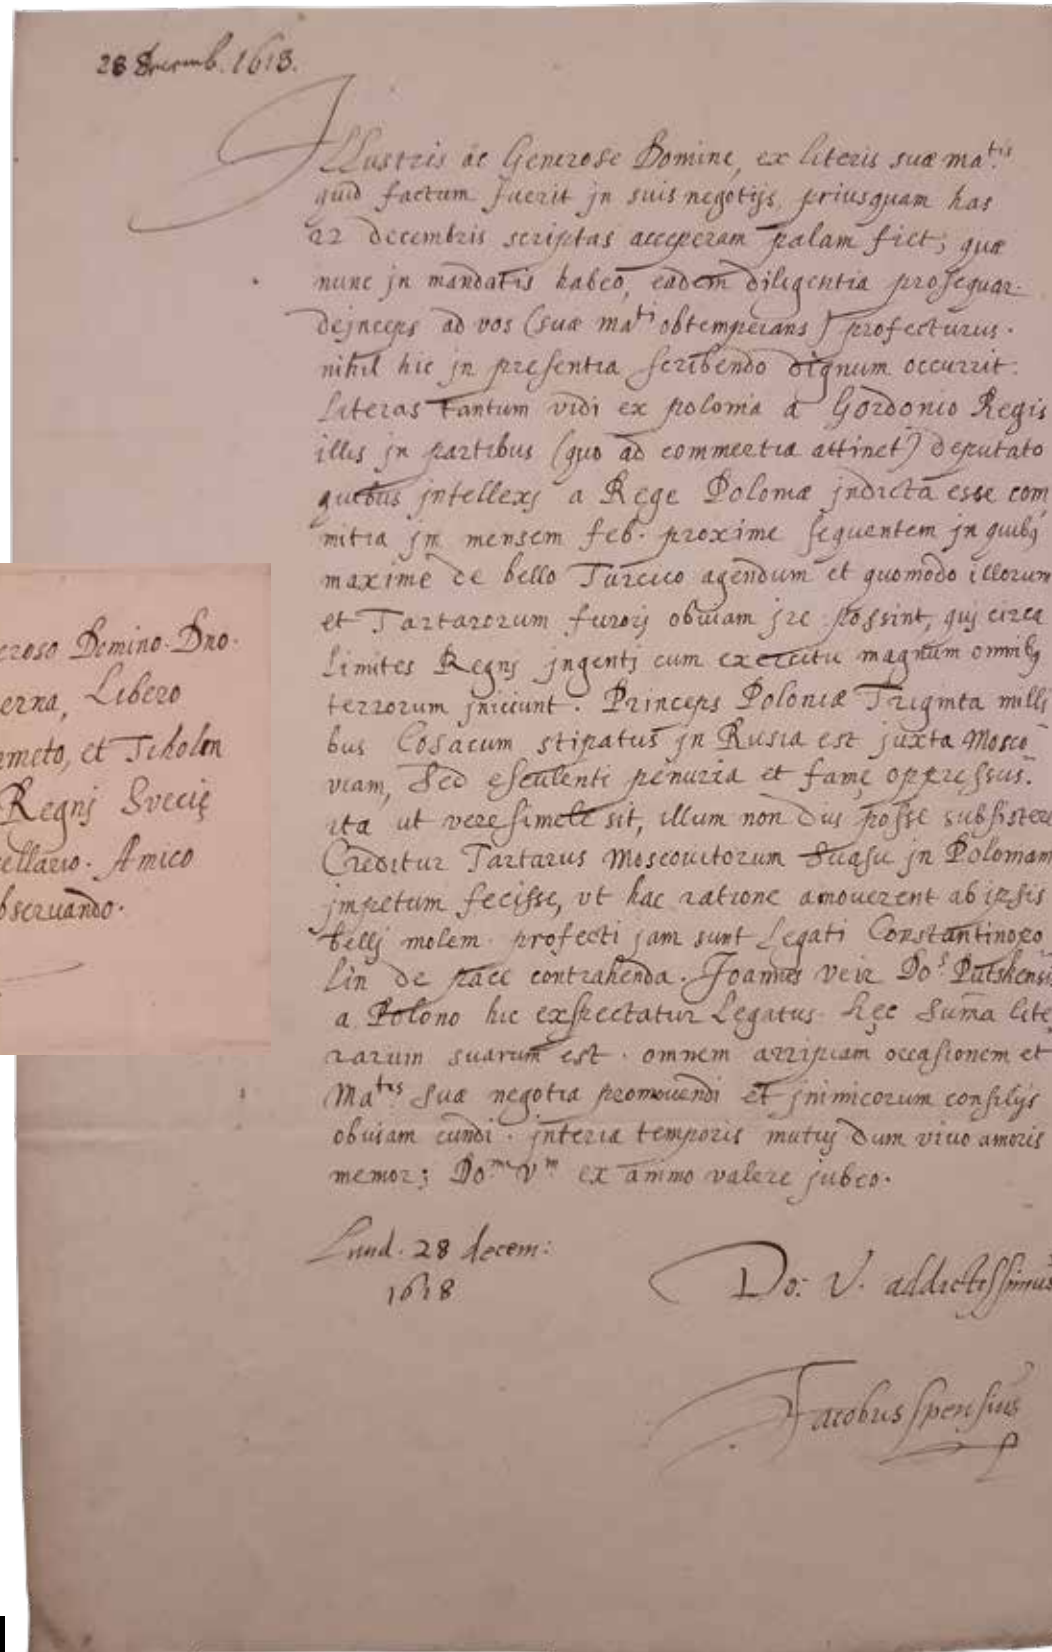 28 Decemb. 1618.
Illustris ac Generose Domine, ex literis suæ ma.tis
quid factum fuerit jn suis negotijs, priusquam has
22 decembris scriptas acceperam palam fiet; quæ
nunc jn mandatis habeo, eadem diligentia prosequar.
dejnceps ad vos (suæ ma.ti obtemperans) profecturus.
nihil hic jn presentia scribendo dignum occurrit.
literas tantum vidi ex polonia a Gordonio Regis
illis jn partibus (quo ad commertia attinet) deputato
quibus jntellexj a Rege Poloniæ jndicta esse com
mitia jn mensem feb. proxime sequentem jn quibq
maxime de bello Turcico agendum et quomodo illorum
et Tartarorum furorj obuiam jre possint, quj circa
limites Regnj jngentj cum exercitu magnum omnibq
terrorum jnieiunt. Princeps Poloniæ Triginta milli
bus Cosacum stipatus jn Rusia est juxta Mosco
viam, Sed esculenti penuria et famę oppressus.
ita ut veresimele sit, illum non diu posse subsistere
Creditur Tartarus Moscouitorum Suasu jn Poloniam
jmpetum fecisse, vt hac ratione amouerent ab ipsis
bellj molem. profecti jam sunt Legati Constantinopo
lin de pace contrahenda. Joannes veir Do.s Putskensi
a Polono hic exspectatur Legatus. hęc Suma lite
rarum suarum est. omnem arripiam occasionem et
Ma.tis Suæ negotia promouendi et jnimicorum consilijs
obuiam eundi. jnteria temporis mutuj dum viuo amoris
memor; Do.m V.m ex animo valere jubeo.
Lund. 28 decem:
1618
Do: V. addictissimus
Jacobus Spensius
eroso Domino. Dno.
erna, Libero
meto, et Tiholm
Regnj Svecię
ellario. Amico
bseruando.